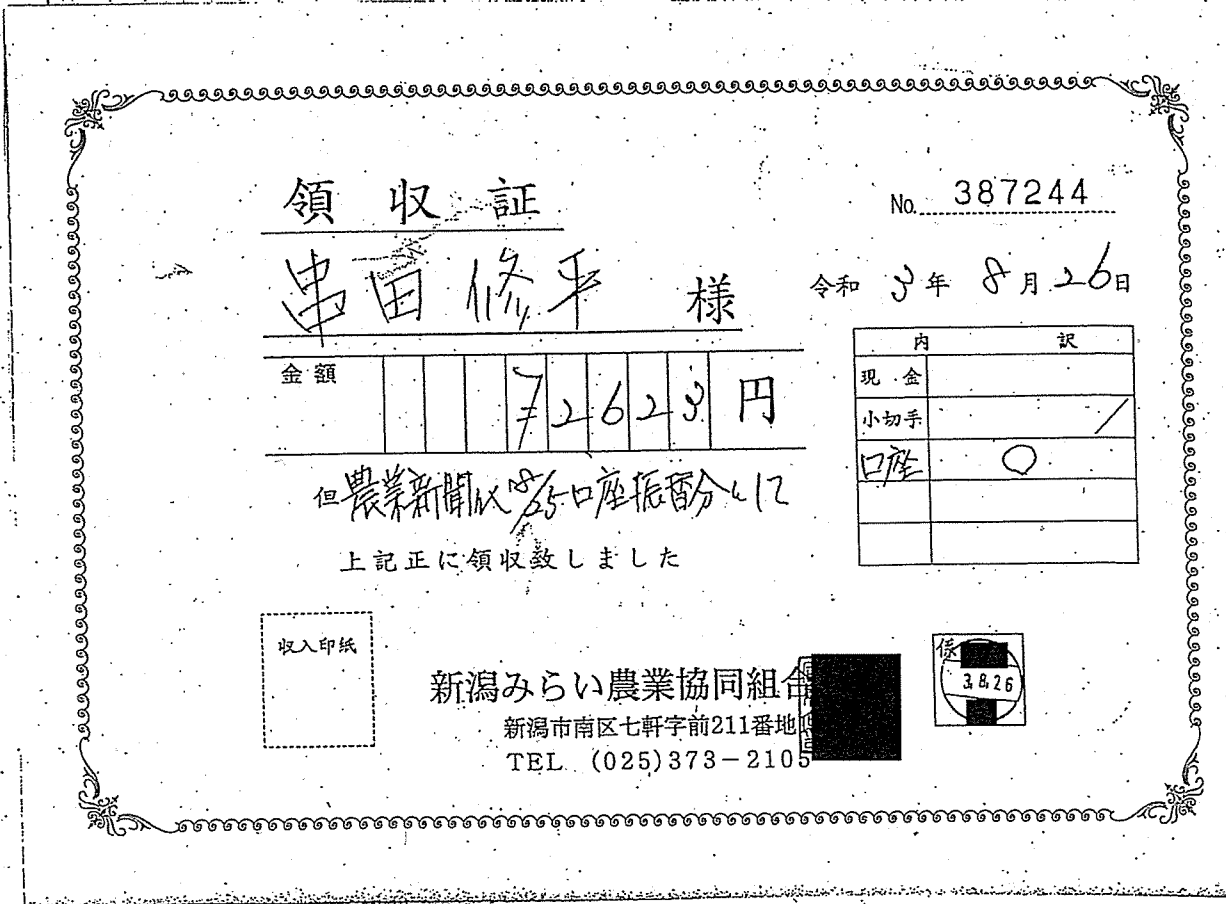 領収証
No. 387244
串田修平 様
令和 3年 8月 26日
金額 ¥2623円
内訳
現金
小切手
口座 ○
但 農業新聞代 8/25口座振替分として
上記正に領収致しました
収入印紙
新潟みらい農業協同組合
新潟市南区七軒字前211番地
TEL (025)373-2105
係
3.8.26